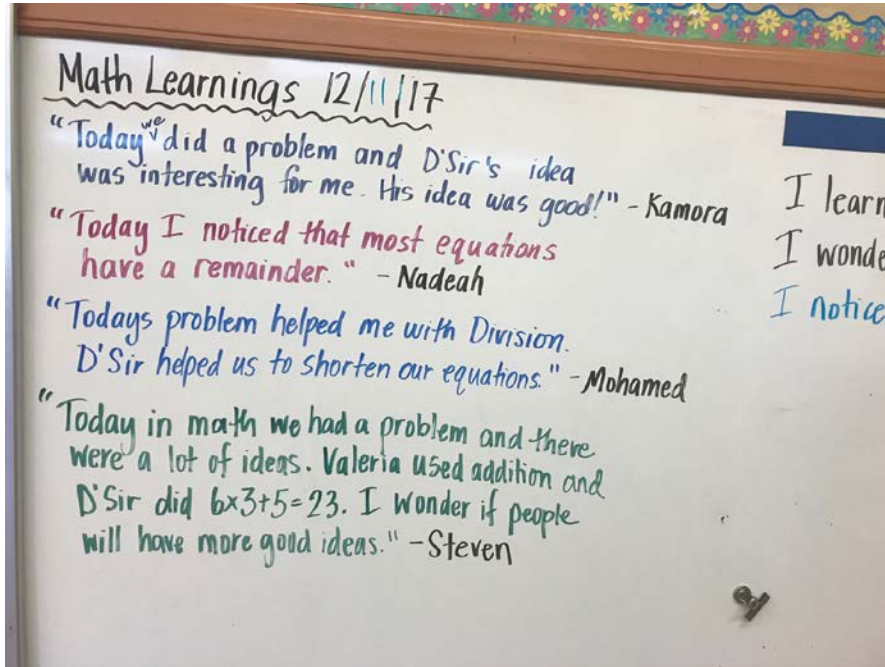 Math Learnings 12/11/17
"Today we did a problem and D'Sir's idea
was interesting for me. His idea was good!" - Kamora
"Today I noticed that most equations
have a remainder." - Nadeah
"Todays problem helped me with Division.
D'Sir helped us to shorten our equations." - Mohamed
"Today in math we had a problem and there
were a lot of ideas. Valeria used addition and
D'Sir did 6x3+5=23. I wonder if people
will have more good ideas." - Steven
I learn
I wonde
I notice